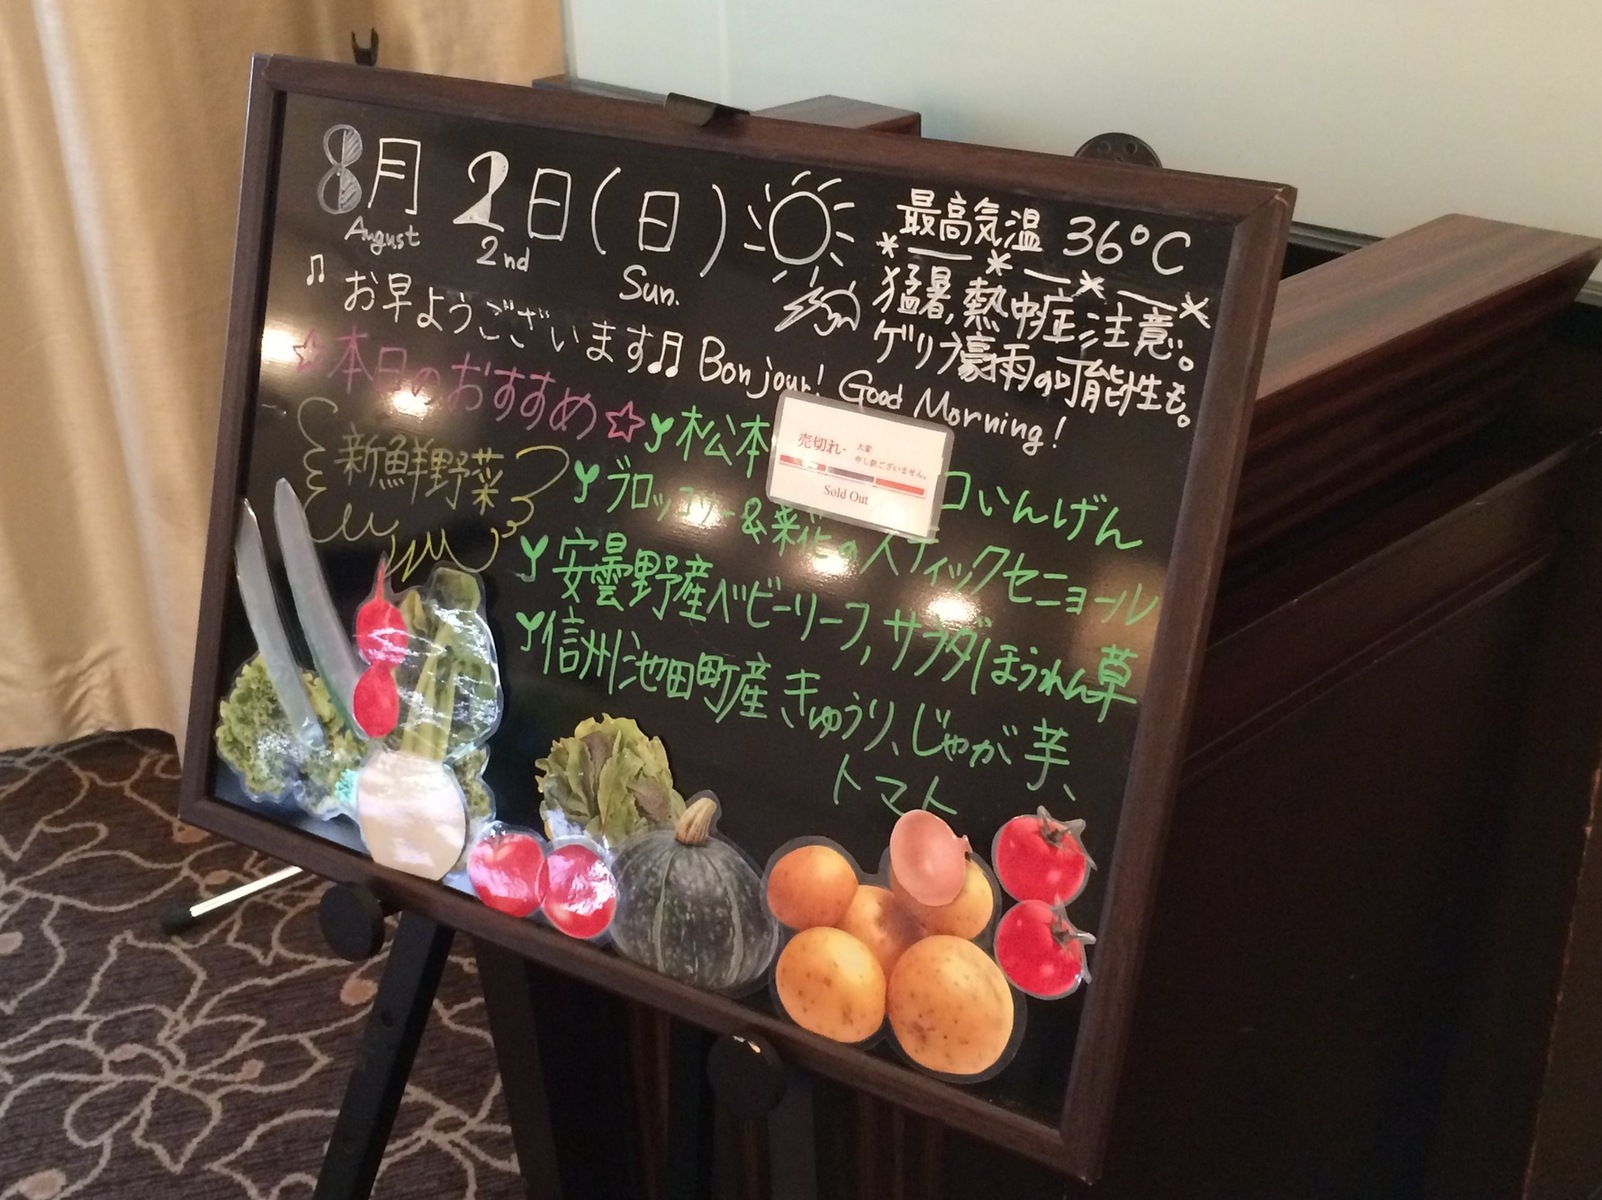 8月 2日(日)
August 2nd Sun.
最高気温 36℃
猛暑,熱中症注意。
ゲリラ豪雨の可能性も。
お早ようございます♫ Bonjour! Good Morning!
☆本日のおすすめ☆
新鮮野菜
松本
コいんげん
売切れ
大変
申し訳ございません。
Sold Out
ブロッコリー&菜花のスティックセニョール
安曇野産ベビーリーフ,サラダほうれん草
信州池田町産きゅうり、じゃが芋、
トマト